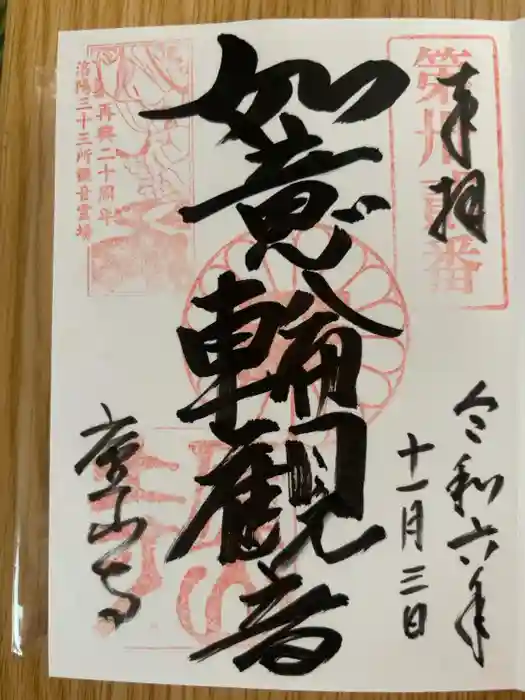 奉拝
第卅貳番
令和六年
十一月三日
如意輪觀音
再興二十周年
洛陽三十三所観音霊場
廬山寺